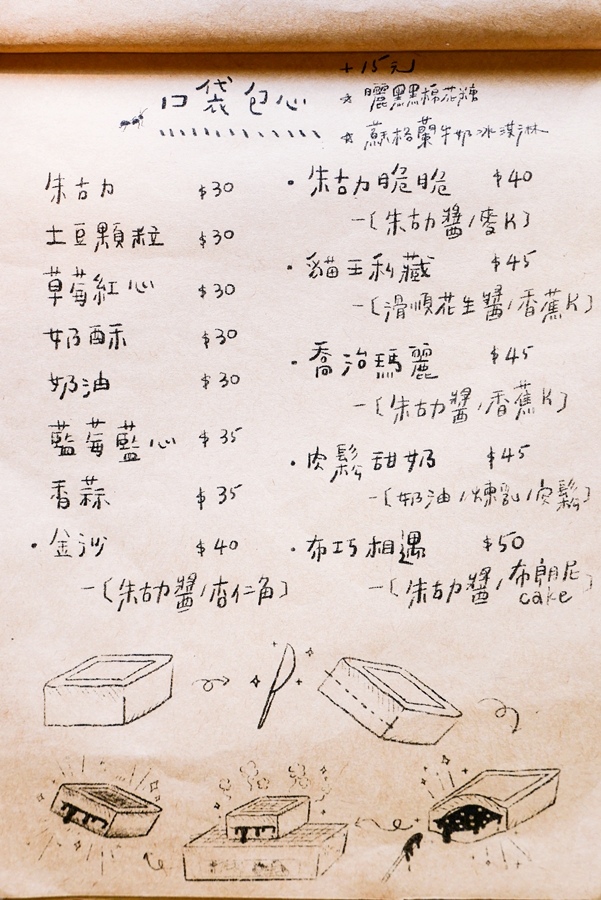 口袋包心
+15元
☆ 曬黑黑棉花糖
☆ 蘇格蘭牛奶冰淇淋
朱古力 $30
土豆顆粒 $30
草莓紅心 $30
奶酥 $30
奶油 $30
藍莓藍心 $35
香蒜 $35
·金沙 $40
-〔朱古力醬/杏仁角〕
·朱古力脆脆 $40
-〔朱古力醬/麥K〕
·貓王私藏 $45
-〔滑順花生醬/香蕉K〕
·喬治瑪麗 $45
-〔朱古力醬/香蕉K〕
·肉鬆甜奶 $45
-〔奶油/煉乳/肉鬆〕
·布巧相遇 $50
-〔朱古力醬/布朗尼cake〕